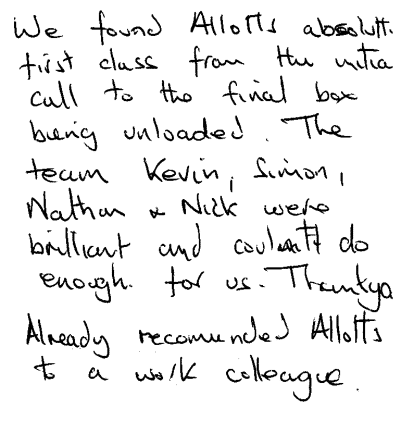 We found Allotts absolutt.
first class from the initia
call to the final box
being unloaded. The
team Kevin, Simon,
Nathan & Nick were
brilliant and couldn't do
enough. for us. Thankyo
Already recomended Allotts
to a work colleague.